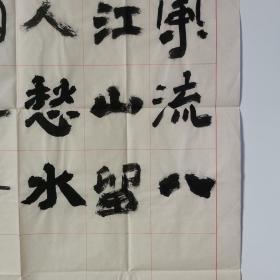 风流八
江山留
人愁水